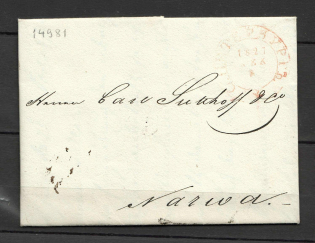 14981
1827
Herren Carl Suthoff & Co
Narwa.